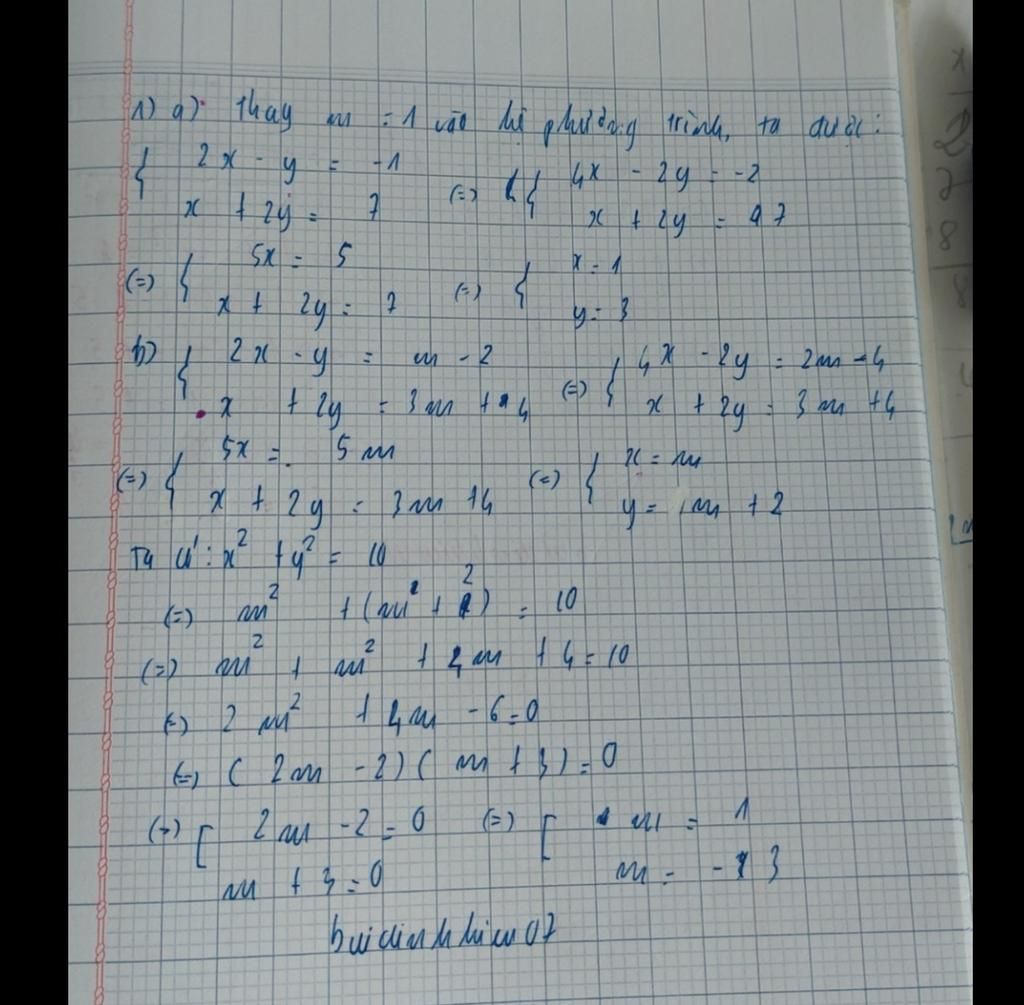 1) a) Thay m = 1 vào hệ phương trình, ta được:
{ 2x - y = -1 (=) { 4x - 2y = -2
x + 2y = 7 x + 2y = 7
(=) { 5x = 5 (=) { x = 1
x + 2y = 7 y = 3
b) { 2x - y = m - 2 (=) { 4x - 2y = 2m - 4
x + 2y = 3m + 4 x + 2y = 3m + 4
(=) { 5x = 5m (=) { x = m
x + 2y = 3m + 4 y = m + 2
Ta có: x² + y² = 10
(=) m² + (m + 2)² = 10
(=) m² + m² + 4m + 4 = 10
(=) 2m² + 4m - 6 = 0
(=) (2m - 2)(m + 3) = 0
(=) [ 2m - 2 = 0 (=) [ m = 1
m + 3 = 0 m = -3
buidinhhieu07